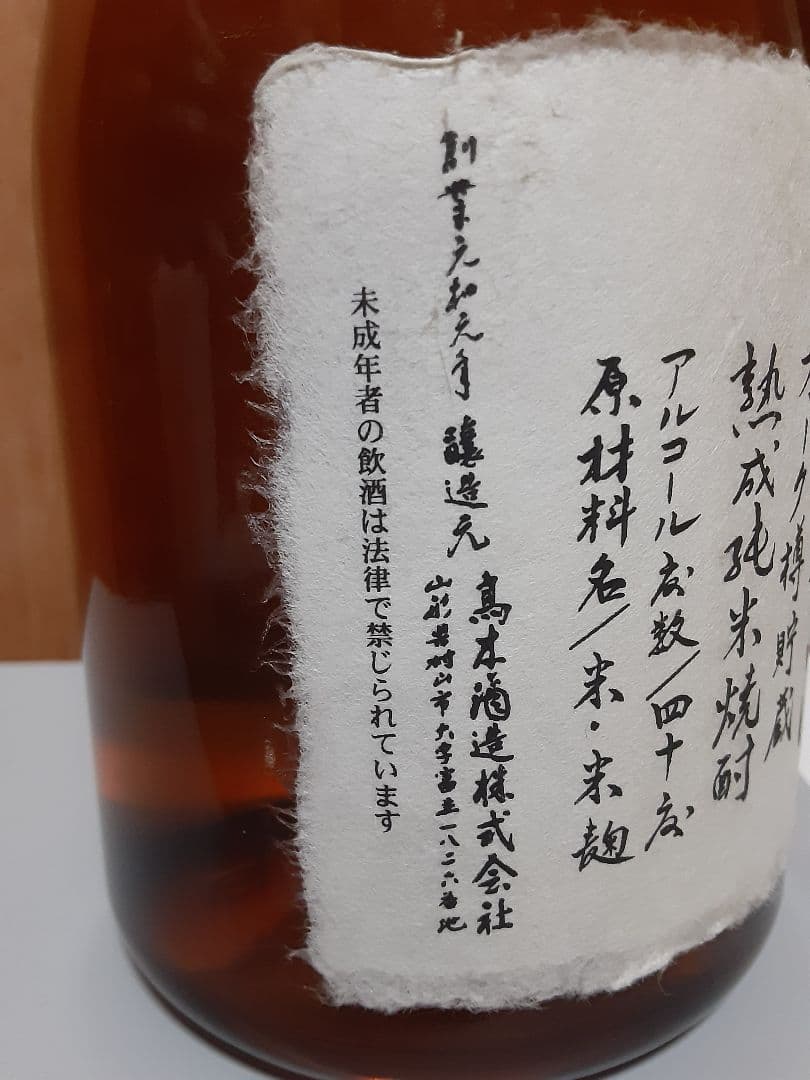 オーク樽貯蔵
熟成純米焼酎
アルコール度数/四十度
原材料名/米・米麹
創業元和元年 醸造元 高木酒造株式会社
山形県村山市大字富並一八二六番地
未成年者の飲酒は法律で禁じられています